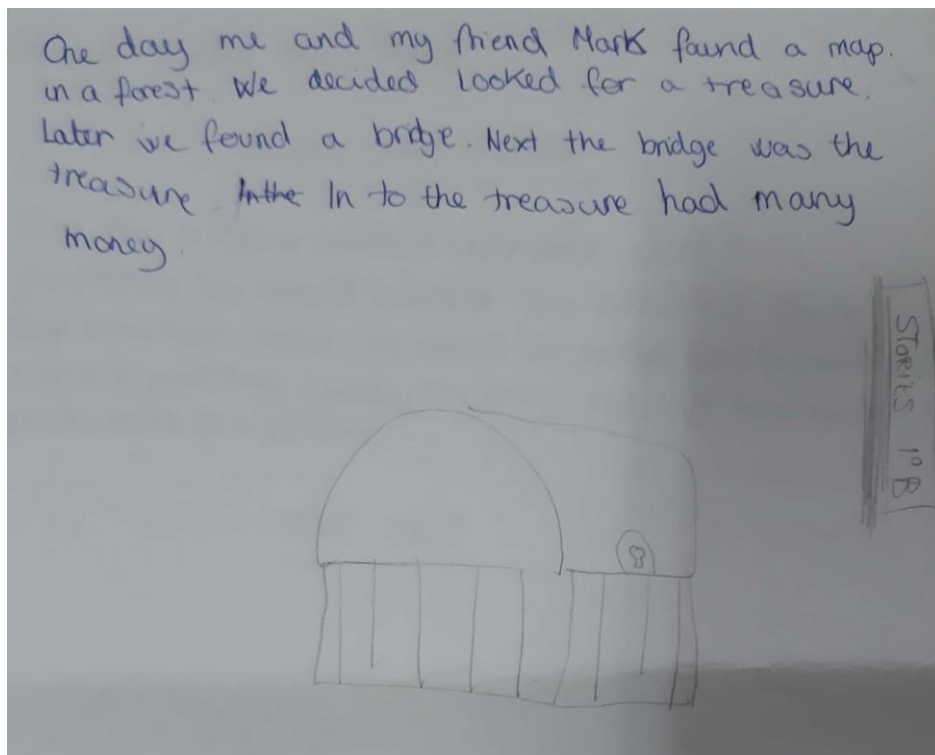 One day me and my friend Mark found a map.
in a forest. We decided looked for a treasure.
Later we found a bridge. Next the bridge was the
treasure. In the In to the treasure had many
money.
STORIES 1º B